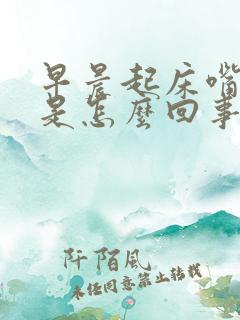 早晨起床嘴
是怎麼回事
阡陌風
未任同意禁止转载